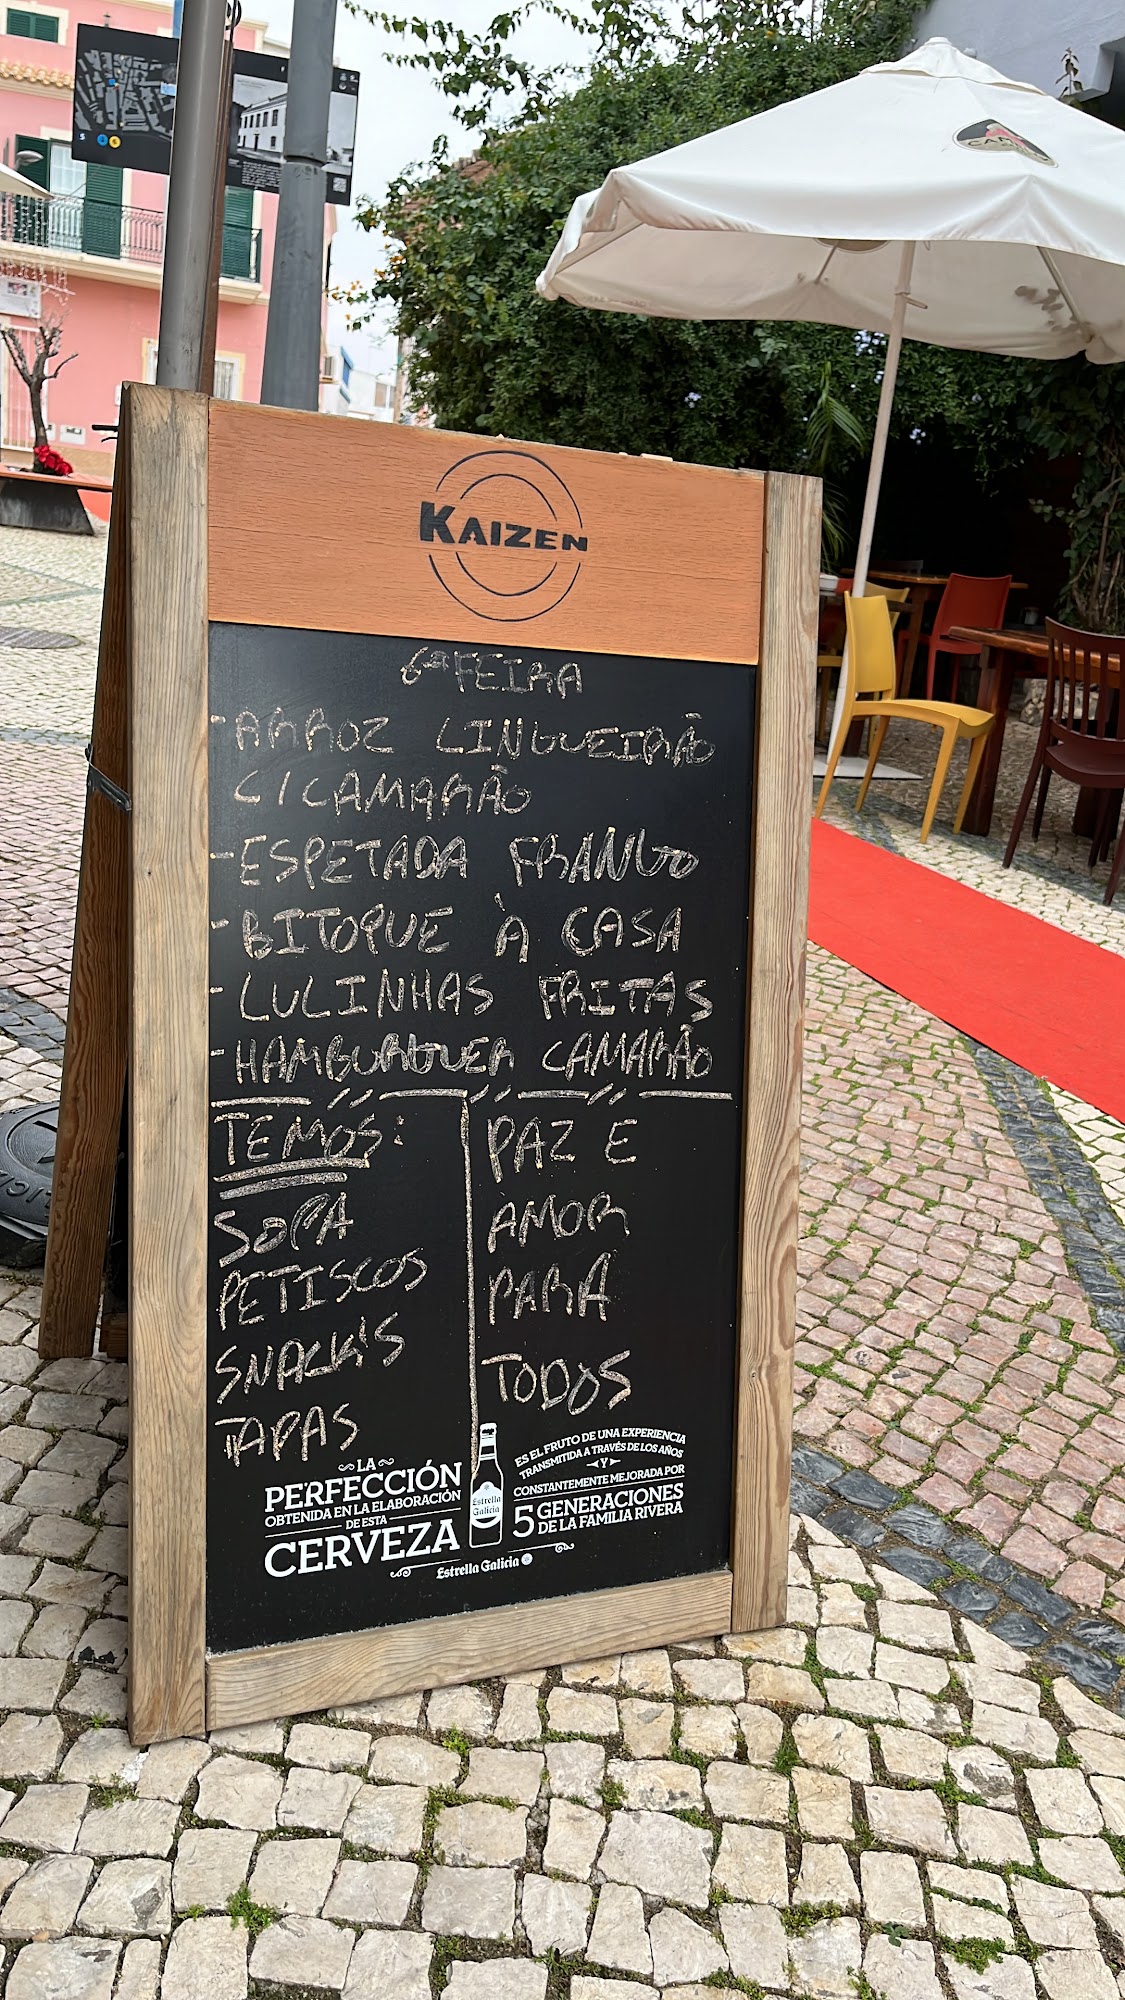 KAIZEN
6ª FEIRA
-ARROZ LINGUEIRÃO
C/CAMARÃO
-ESPETADA FRANGO
-BITOQUE À CASA
-LULINHAS FRITAS
-HAMBURGUER CAMARÃO
TEMOS:
SOPA
PETISCOS
SNACK'S
TAPAS
PAZ E
AMOR
PARA
TODOS
LA
PERFECCIÓN
OBTENIDA EN LA ELABORACIÓN
DE ESTA
CERVEZA
Estrella
Galicia
ES EL FRUTO DE UNA EXPERIENCIA
TRANSMITIDA A TRAVÉS DE LOS AÑOS
Y
CONSTANTEMENTE MEJORADA POR
5 GENERACIONES
DE LA FAMILIA RIVERA
Estrella Galicia